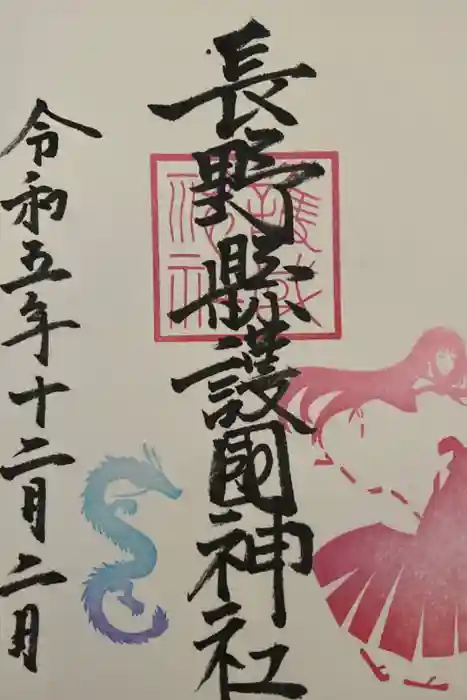 長野縣護國神社
護國
神社
令和五年十二月二日